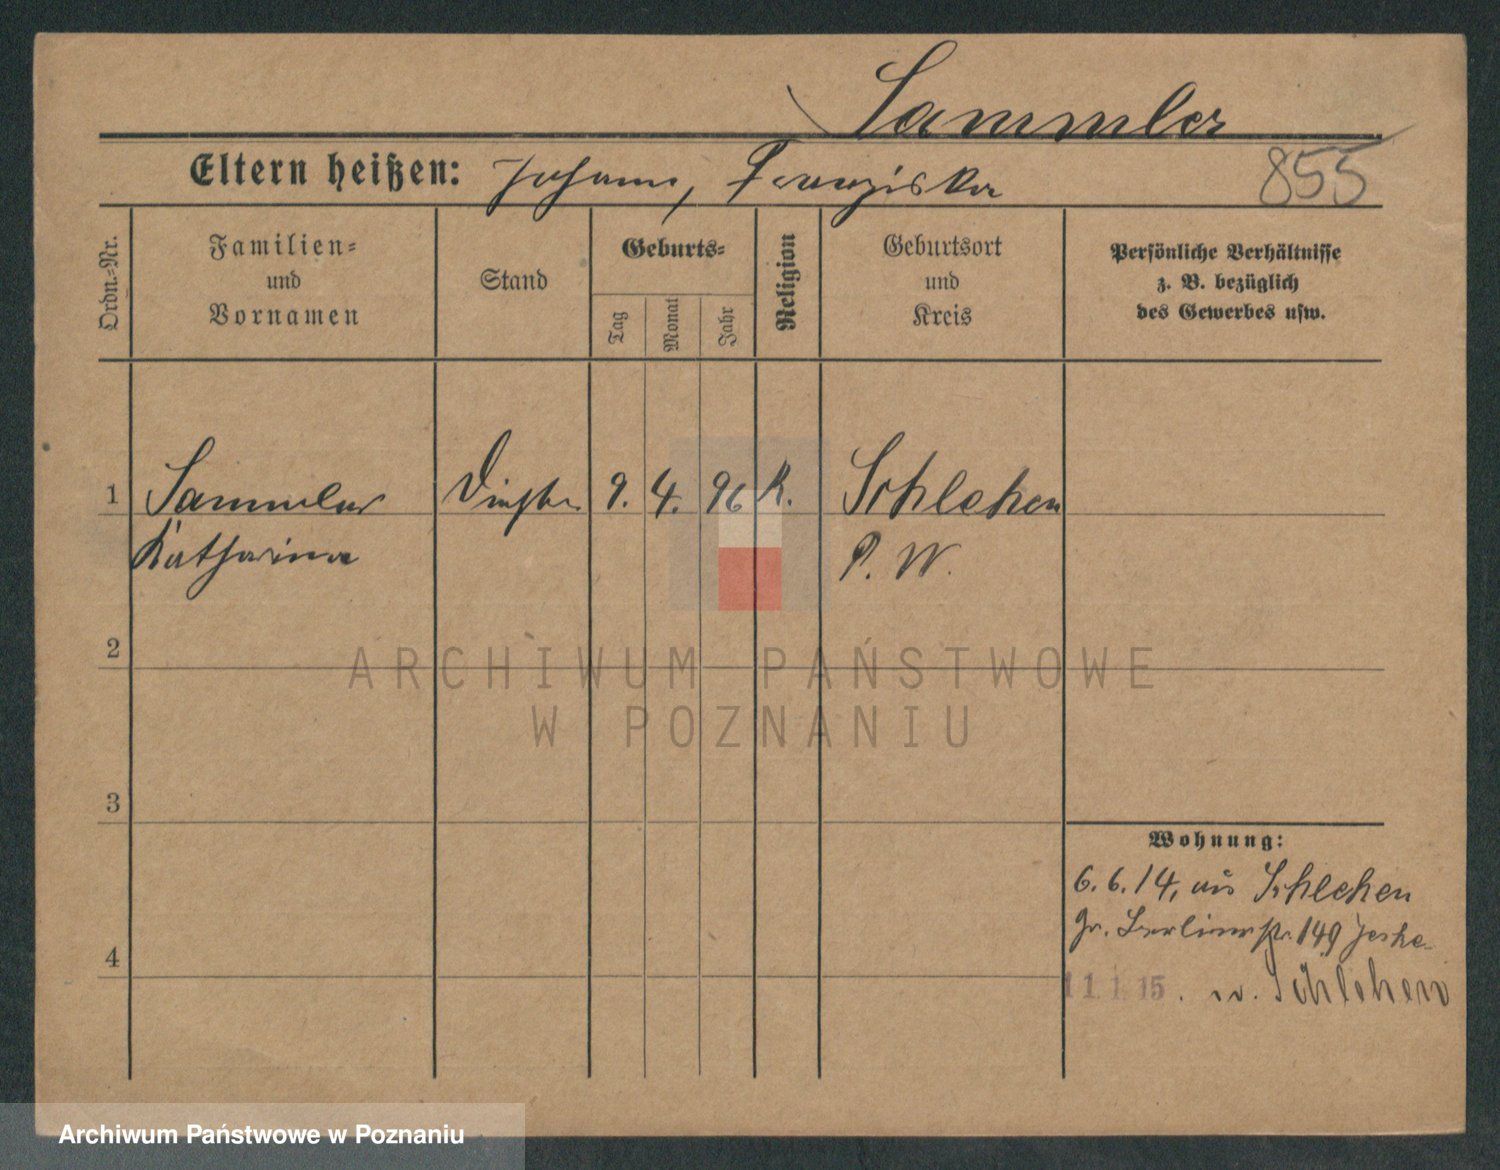 Sammler
Eltern heißen: Johann, Franziska
855
Ordn.-Nr.
Familien-
und
Vornamen
Stand
Geburts-
Tag
Monat
Jahr
Religion
Geburtsort
und
Kreis
Persönliche Verhältnisse
z. B. bezüglich
des Gewerbes usw.
1 Sammler 9. 4. 96 K. Schlehen
Katharina P. W.
2
3
4
Wohnung:
6.6.14, aus Schlehen
Gr. Berlinerstr. 149 Jeske
11.1.15. n. Schlehen
ARCHIWUM PAŃSTWOWE
W POZNANIU
Archiwum Państwowe w Poznaniu